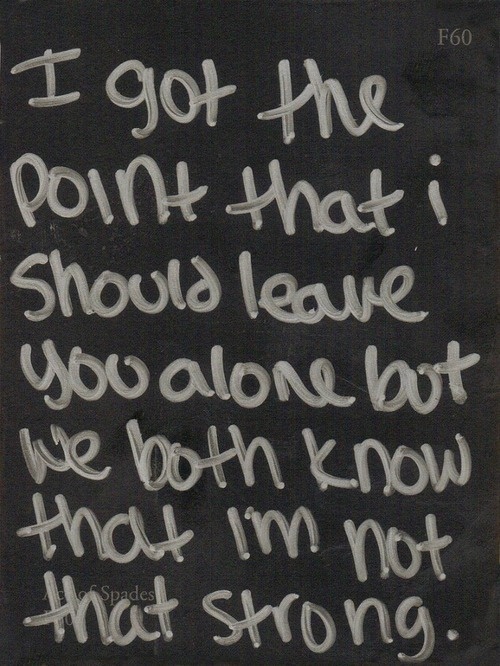 F60
I got the
point that i
should leave
you alone but
we both know
that I'm not
Ace of Spades
that strong.